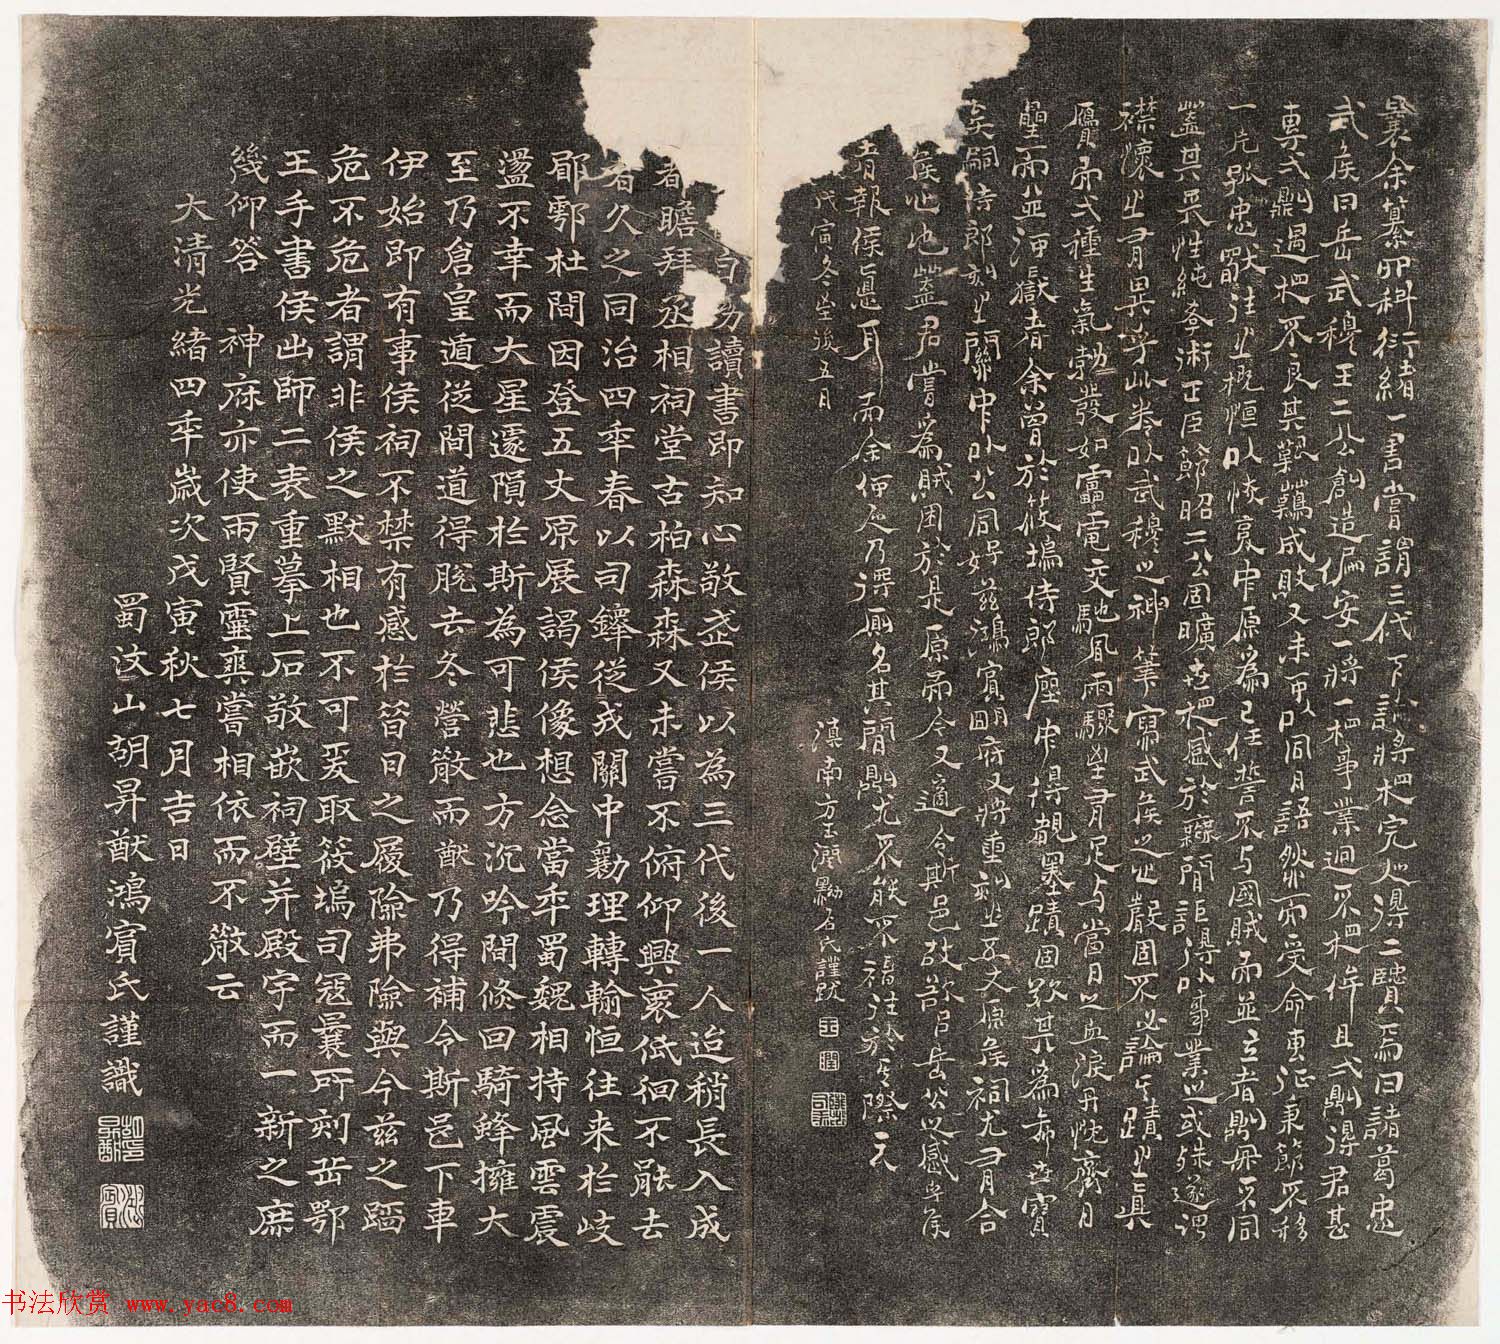 曩余纂 科衍緒一書嘗謂三代下論將相完人得二賢焉曰諸葛忠
武侯曰岳武穆王二公創造偏安一將一相事業迥不相侔且武則得君甚
專武則遇相不良其艱難成敗又未可以同日語然而受命專征秉節不移
一片孤忠 往之概恒以恢復中原為己任誓不与國賊而並立者則毋不同
蓋其 性純孝術正臣節昭二公固曠世相感於 間詎得以事業之或殊遂謂
襟懷之有異乎此卷以武穆之神筆寫武侯之 嚴固不必論其蹟之真
贗而 種生氣勃勃發如雷電交馳風雨驟 有足与當日之血淚丹忱齊日
壘而並河嶽者余曾於筱塢侍郎座中得覩墨蹟固歎其為希世寶
矣嗣侍郎刻之關中以公同好茲鴻賓明府又將重刻之五丈原侯祠尤有合
侯心也蓋君嘗為賊困於是原而今又適令斯邑故 岳公之感
者報侯 耳而余 乃得 名其間 尤不能不 往於 際 天
戊寅冬至後五日
滇南方玉潤黝石氏謹跋
幼讀書即知心敬武侯以為三代後一人迨稍長入成
者瞻拜丞相祠堂古柏森森又未嘗不俯仰興衷低徊不能去
者久之同治四年春以司鐸從戎關中襄理轉輸恒往来於岐
郿鄠杜間因登五丈原展謁侯像想念當年蜀魏相持風雲震
盪不幸而大星遽隕於斯為可悲也方沉吟間倏回騎蜂擁大
至乃倉皇遁從間道得脫去冬營散而猷乃得補今斯邑下車
伊始即有事侯祠不禁有感於昔日之履險弗險與今茲之蹈
危不危者謂非侯之默相也不可爰取筱塢司寇曩所刻岳鄂
王手書侯出師二表重摹上石敬嵌祠壁并殿宇而一新之庶
幾仰答 神庥亦使兩賢靈爽嘗相依而不散云
大清光緒四年歲次戊寅秋七月吉日
蜀汶山胡昇猷鴻賓氏謹識
书法欣赏 www.yac8.com